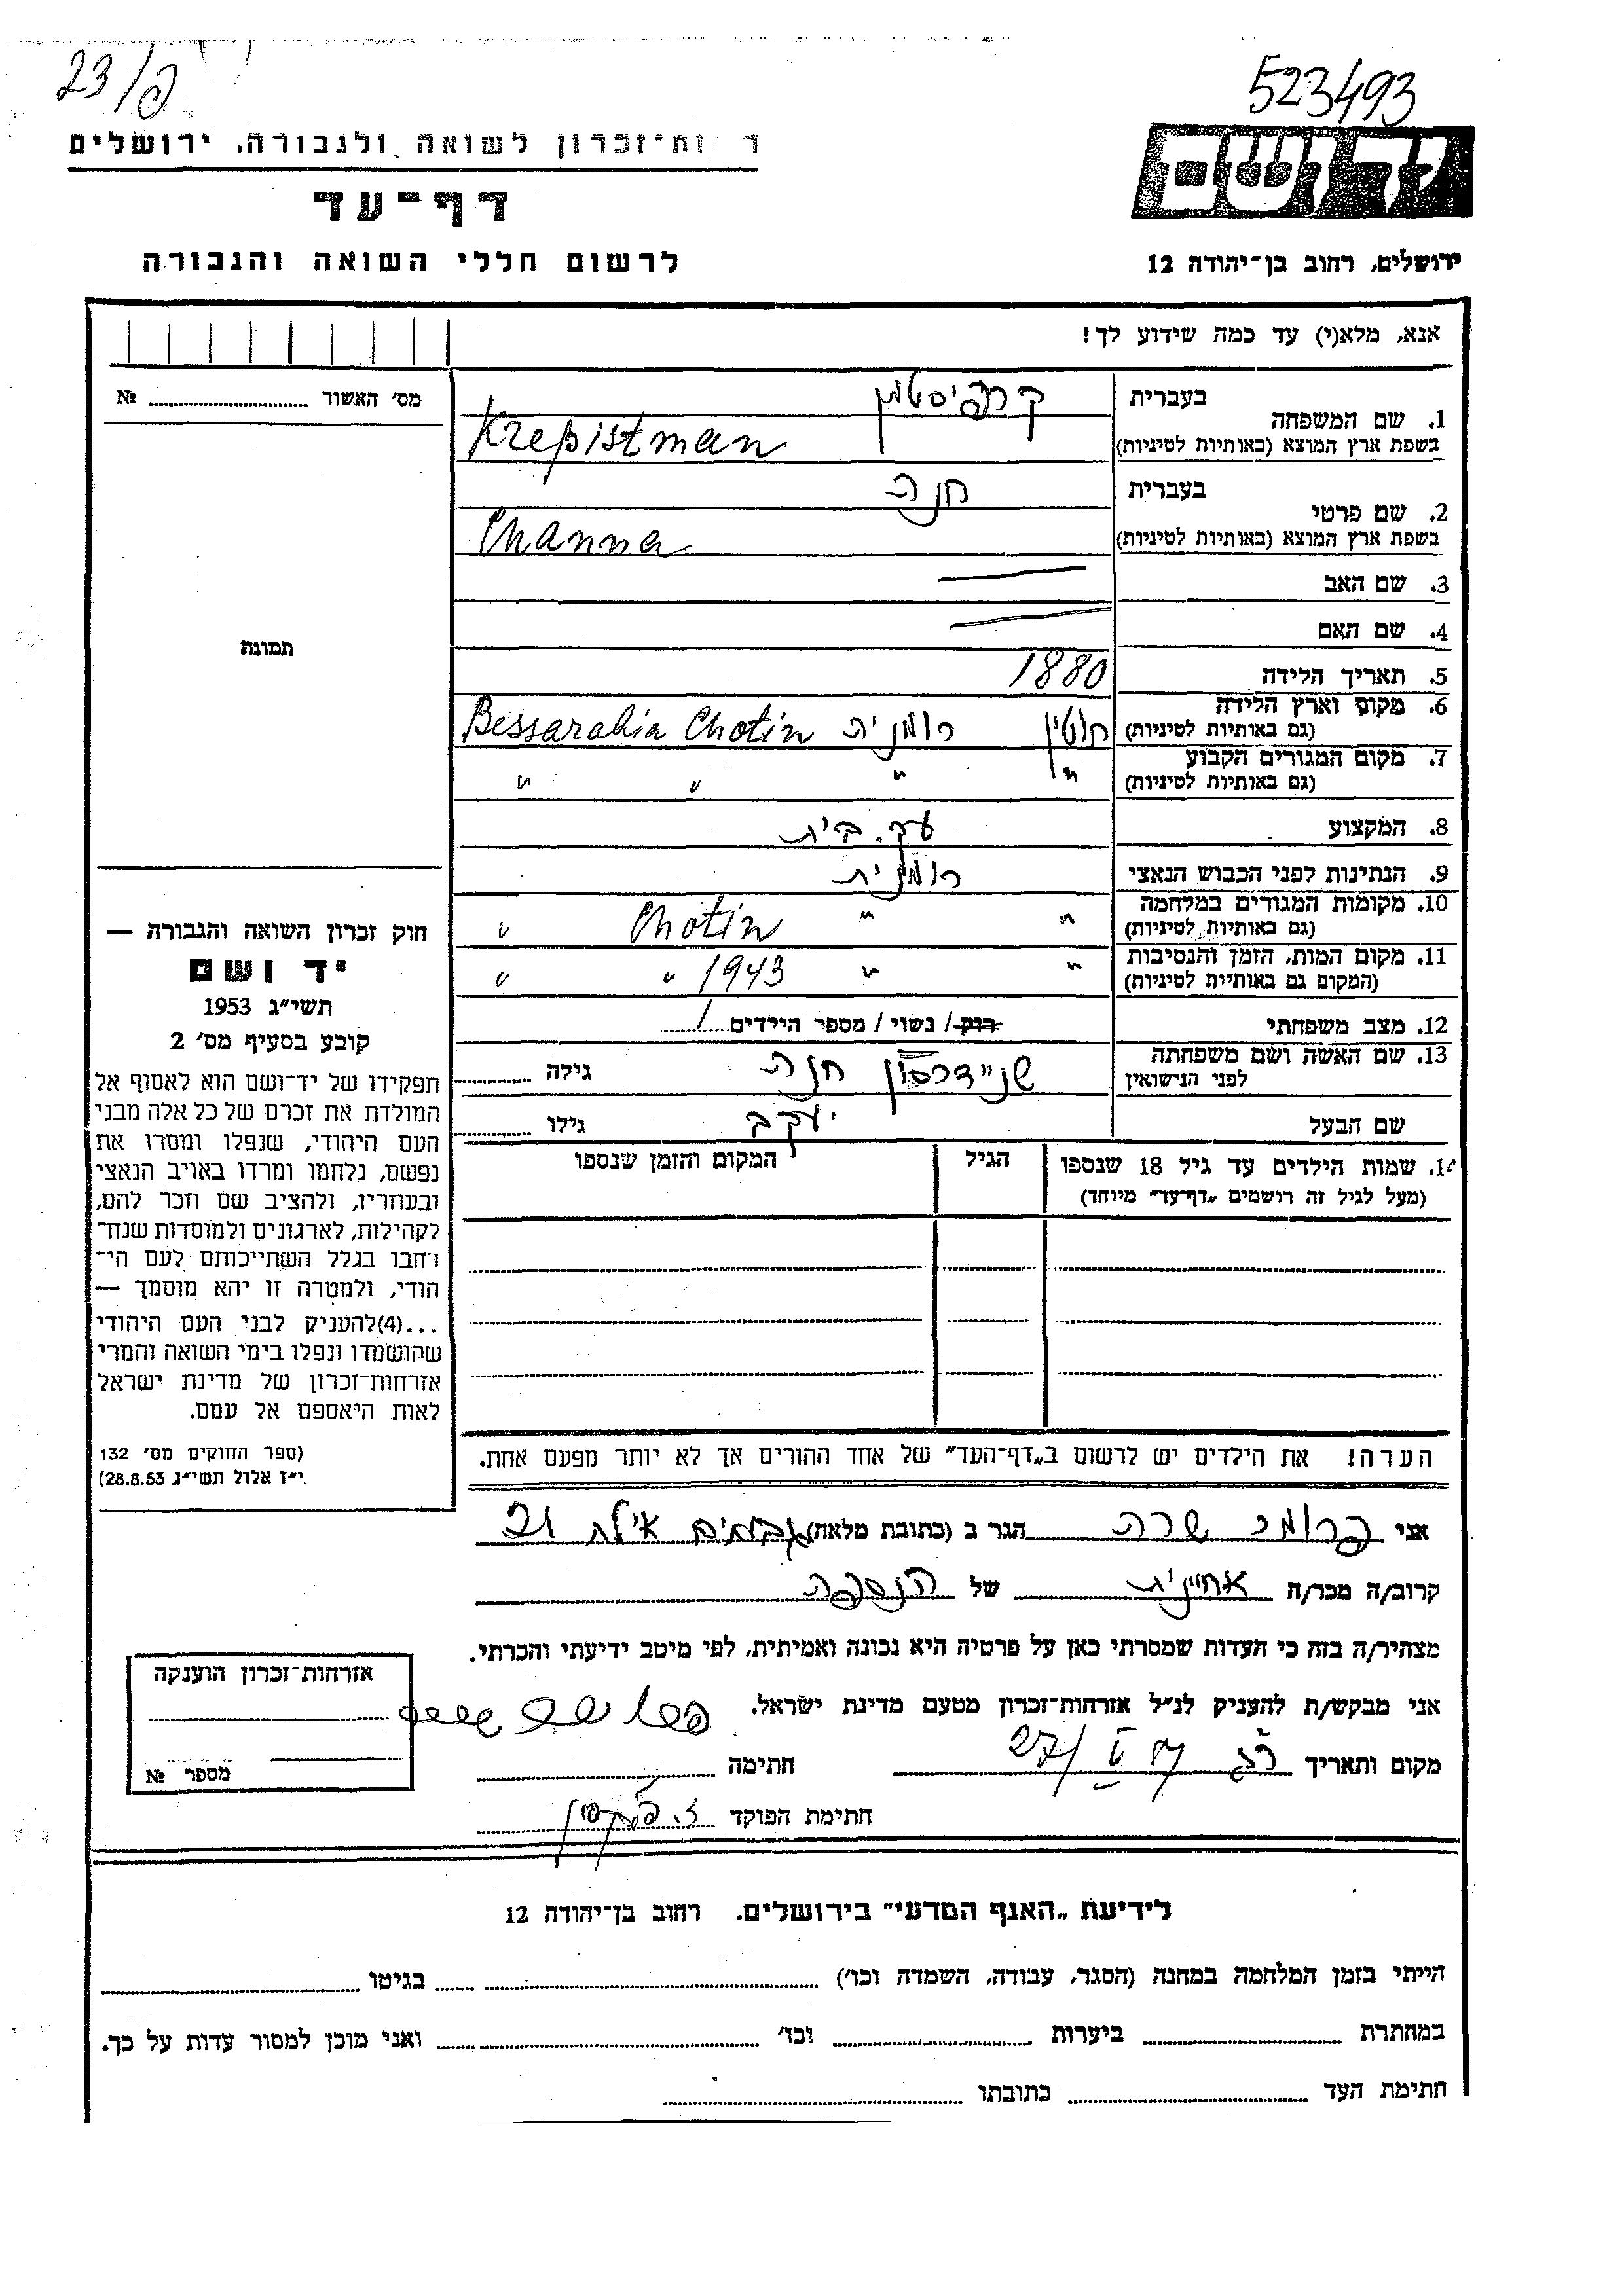 523493
23/פ
יד ושם
ות־זכרון לשואה ולגבורה, ירושלים
דף־עד
ירושלים, רחוב בן־יהודה 12
לרשום חללי השואה והגבורה
אנא, מלא(י) עד כמה שידוע לך!
מס׳ האשור № 
תמונה
1. שם המשפחה
בעברית קרפיסטמן
בשפת ארץ המוצא (באותיות לטיניות) Krepistman
2. שם פרטי
בעברית חנה
בשפת ארץ המוצא (באותיות לטיניות) Channa
3. שם האב —
4. שם האם —
5. תאריך הלידה 1880
6. מקום וארץ הלידה חוטין רומניה Bessarabia Chotin
(גם באותיות לטיניות)
7. מקום המגורים הקבוע " " " "
(גם באותיות לטיניות)
8. המקצוע עק. בית
9. הנתינות לפני הכבוש הנאצי רומנית
10. מקומות המגורים במלחמה " " Chotin "
(גם באותיות לטיניות)
11. מקום המות, הזמן והנסיבות " " 1943 " "
(המקום גם באותיית לטיניות)
12. מצב משפחתי רווק / נשוי / מספר הילדים 1
13. שם האשה ושם משפחתה שניידרסון חנה גילה
לפני הנישואין
שם הבעל יעקב גילו
14. שמות הילדים עד גיל 18 שנספו הגיל המקום והזמן שנספו
(מעל לגיל זה רושמים „דף־עד” מיוחד)
הערה! את הילדים יש לרשום ב„דף־העד” של אחד ההורים אך לא יותר מפעם אחת.
חוק זכרון השואה והגבורה —
יד ושם
תשי״ג 1953
קובע בסעיף מס׳ 2
תפקידו של יד־ושם הוא לאסוף אל
המולדת את זכרם של כל אלה מבני
העם היהודי, שנפלו ומסרו את
נפשם, נלחמו ומרדו באויב הנאצי
ובעוזריו, ולהציב שם וזכר להם,
לקהילות, לארגונים ולמוסדות שנח־
רבו בגלל השתייכותם לעם הי־
הודי, ולמטרה זו יהא מוסמך —
...(4)להעניק לבני העם היהודי
שהושמדו ונפלו בימי השואה והמרי
אזרחות־זכרון של מדינת ישראל
לאות היאספם אל עמם.
(ספר החוקים מס׳ 132
י״ז אלול תשי״ג 28.8.53)
אני שרה הגר ב (כתובת מלאה) גבעתיים אילת 21
קרוב/ה מכר/ה אחיינית של הנספה
מצהיר/ה בזה כי העדות שמסרתי כאן על פרטיה היא נכונה ואמיתית, לפי מיטב ידיעתי והכרתי.
אני מבקש/ת להעניק לנ״ל אזרחות־זכרון מטעם מדינת ישראל.
מקום ותאריך רג 27/ V חתימה
חתימת הפוקד
אזרחות־זכרון הוענקה
מספר №
לידיעת „האגף המדעי” בירושלים. רחוב בן־יהודה 12
הייתי בזמן המלחמה במחנה (הסגר, עבודה, השמדה וכו׳) בגיטו
במחתרת ביערות וכו׳ ואני מוכן למסור עדות על כך.
חתימת העד כתובתו